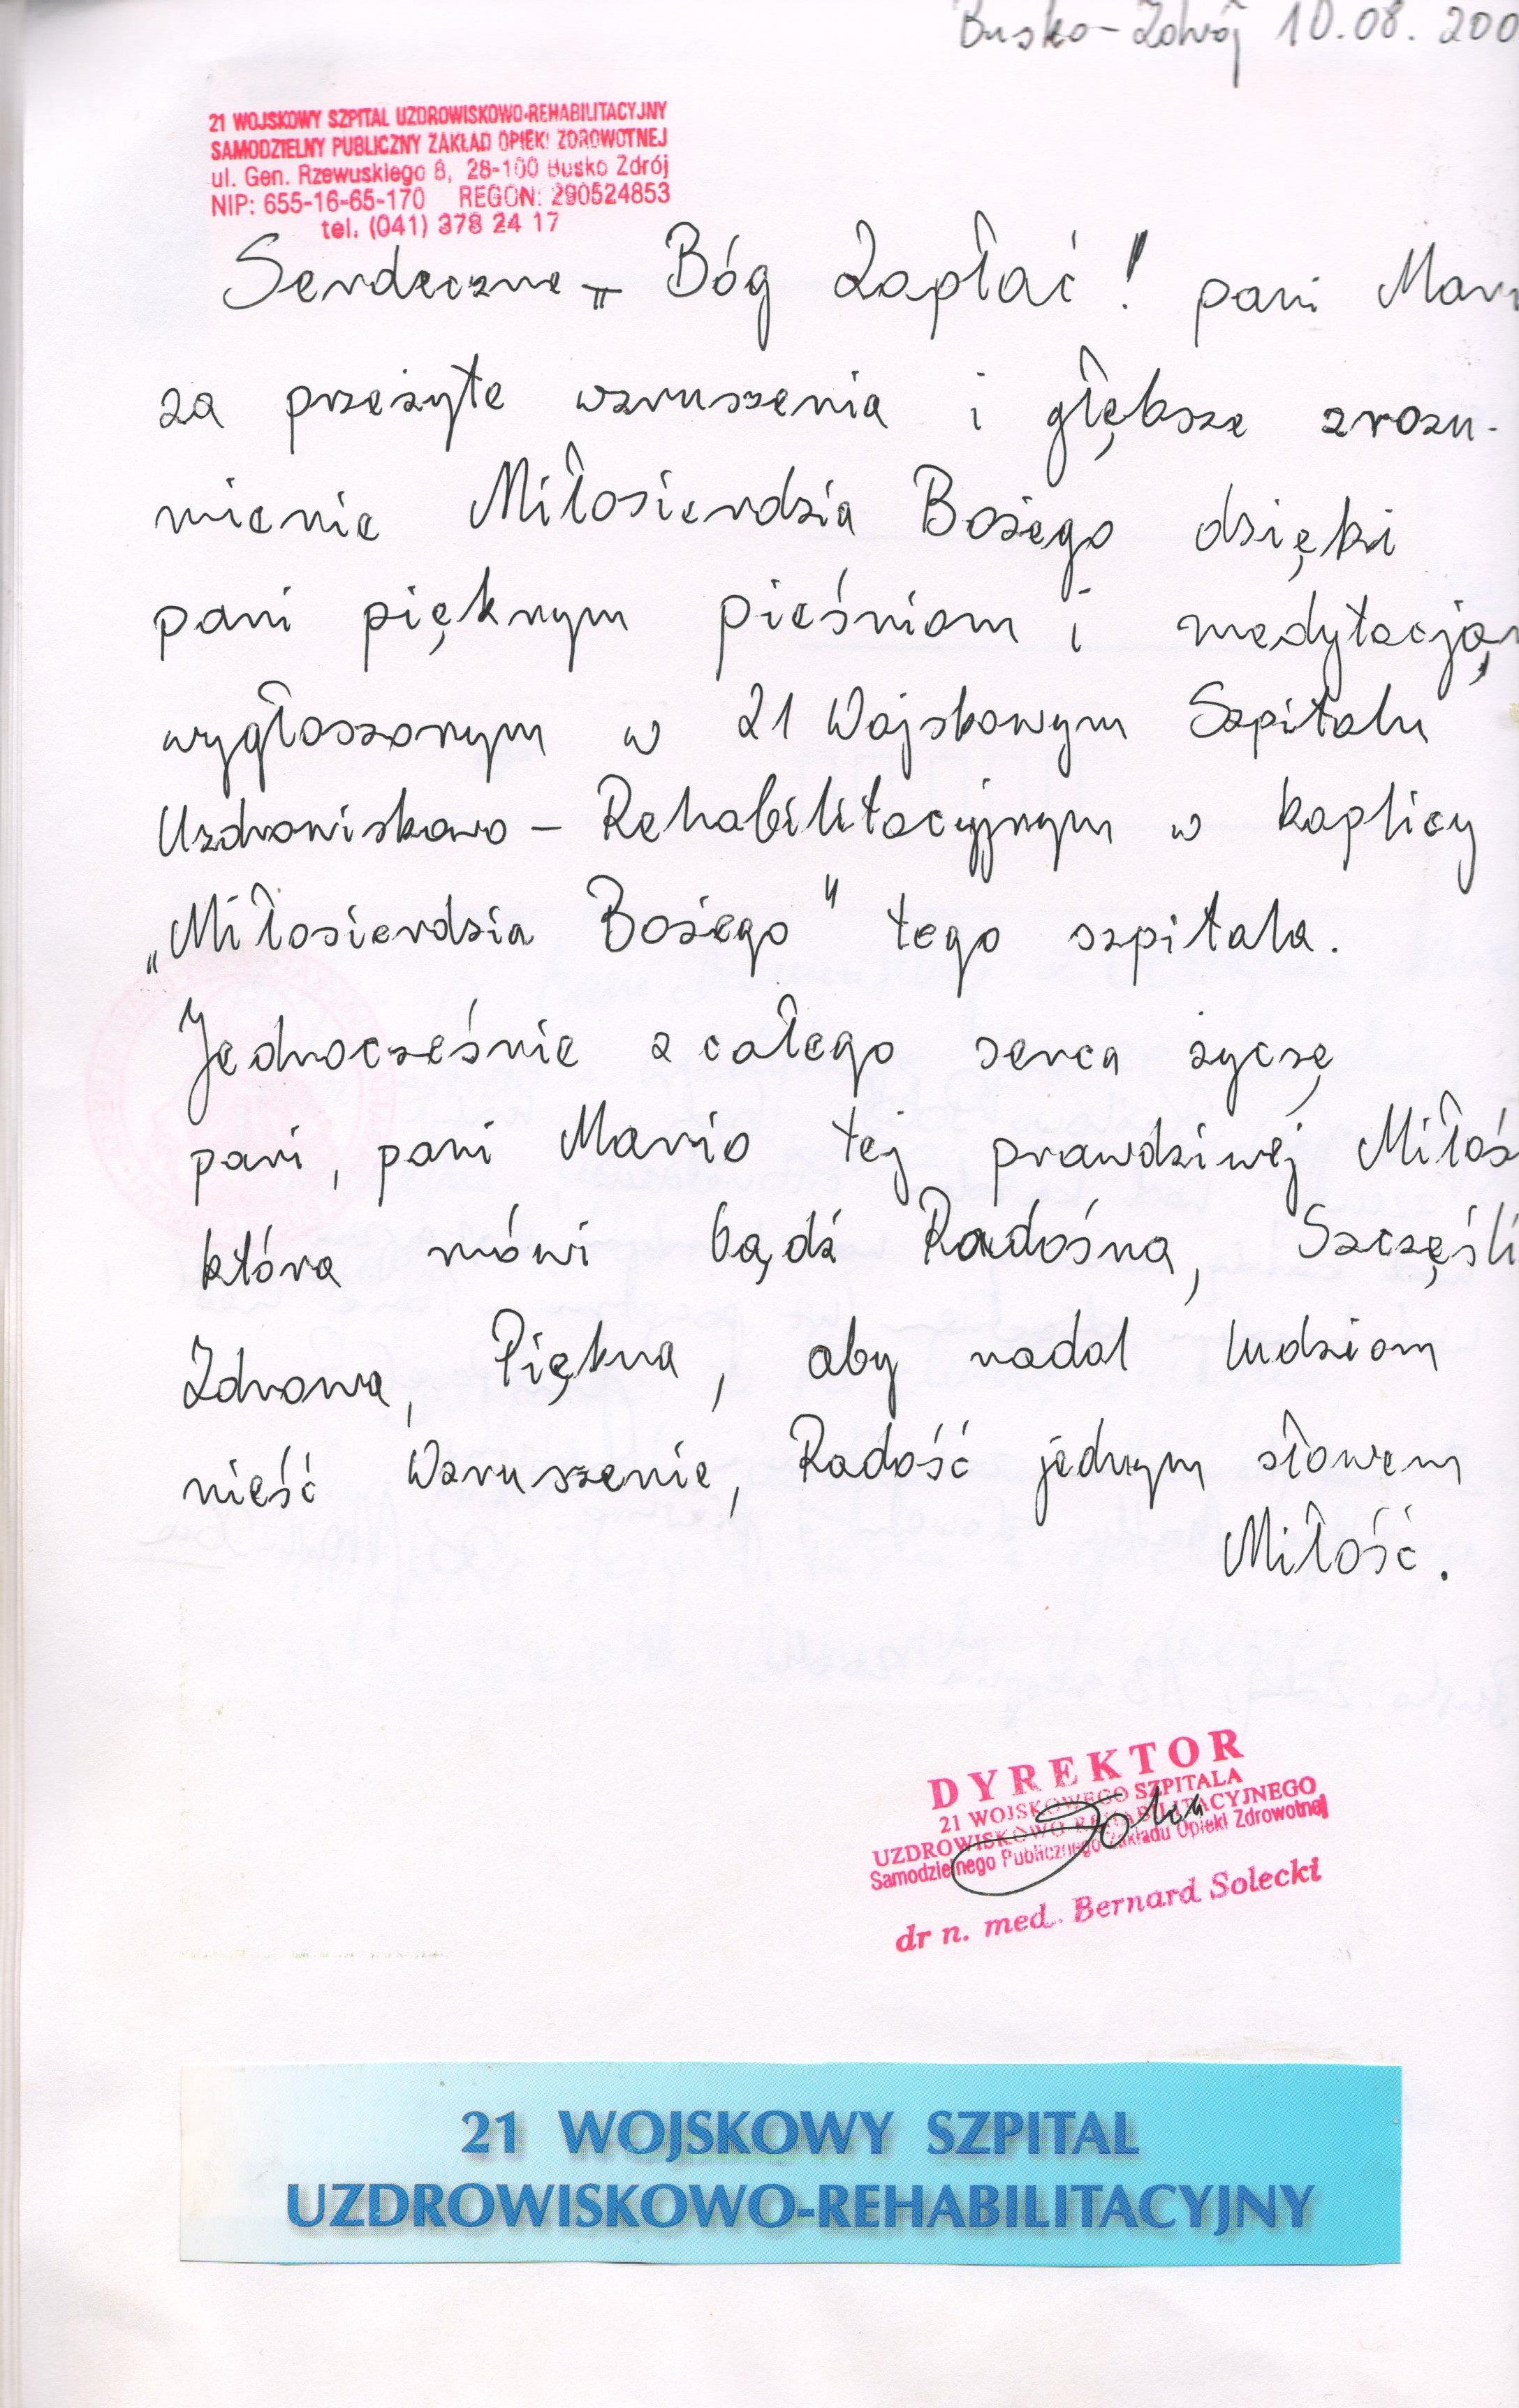 Busko-Zdrój 10.08.200
21 WOJSKOWY SZPITAL UZDROWISKOWO-REHABILITACYJNY
SAMODZIELNY PUBLICZNY ZAKŁAD OPIEKI ZDROWOTNEJ
ul. Gen. Rzewuskiego 8, 28-100 Busko Zdrój
NIP: 655-16-65-170 REGON: 290524853
tel. (041) 378 24 17
Serdeczne „Bóg Zapłać!" pani Mari
za przeżyte wzruszenia i głębsze zrozu-
mienie Miłosierdzia Bożego dzięki
pani pięknym pieśniom i medytacją
wygłoszonym w 21 Wojskowym Szpitalu
Uzdrowiskowo - Rehabilitacyjnym w kaplicy
„Miłosierdzia Bożego" tego szpitala.
Jednocześnie z całego serca życzę
pani, pani Mario tej prawdziwej Miłoś
która mówi bądź Radosna, Szczęśli
Zdrowa, Piękna, aby nadal ludziom
nieść Wzruszenie, Radość jednym słowem
Miłość.
DYREKTOR
21 WOJSKOWEGO SZPITALA
UZDROWISKOWO-REHABILITACYJNEGO
Samodzielnego Publicznego Zakładu Opieki Zdrowotnej
dr n. med. Bernard Solecki
21 WOJSKOWY SZPITAL
UZDROWISKOWO-REHABILITACYJNY